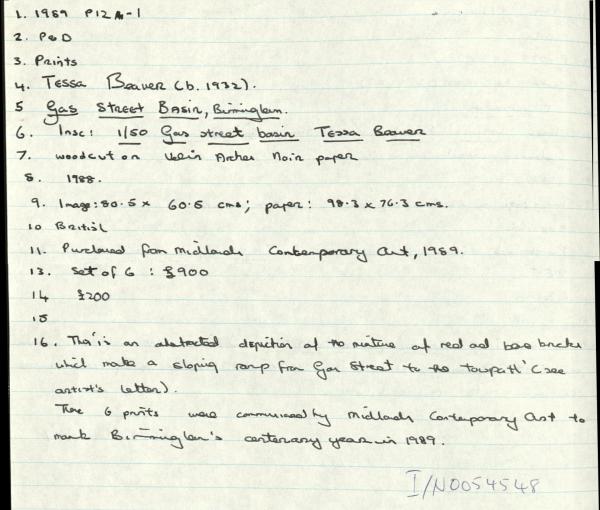 1. 1989 P12 -1
2. P&D
3. Prints
4. Tessa Beaver (b. 1932).
5 Gas Street Basin, Birmingham.
6. Insc: 1/50 Gas street basin Tessa Beaver
7. woodcut on Arches Noir paper
8. 1988.
9. Image: 80.5 x 60.5 cms; paper: 98.3 x 76.3 cms.
10 British
11. Purchased from Midlands Contemporary Art, 1989.
13. Set of 6 : £900
14 £200
15
16. This is an abstracted depiction of the mixture of red and blue bricks
which make a sloping ramp from Gas Street to the towpath' (see
artist's letter).
These 6 prints were commissioned by Midlands Contemporary Art to
mark Birmingham's centenary year in 1989.
I/N0054548